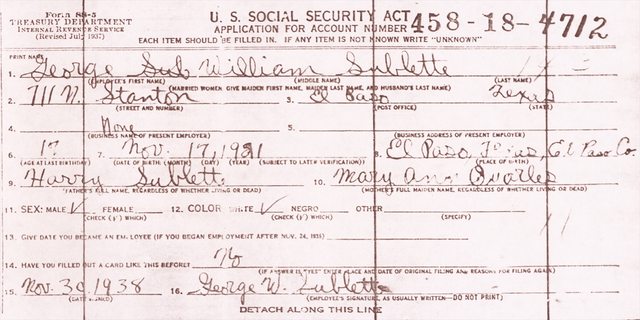 Form SS-5
TREASURY DEPARTMENT
INTERNAL REVENUE SERVICE
(Revised July 1937)
U. S. SOCIAL SECURITY ACT
APPLICATION FOR ACCOUNT NUMBER
458-18-4712
EACH ITEM SHOULD BE FILLED IN. IF ANY ITEM IS NOT KNOWN WRITE "UNKNOWN"
PRINT NAME
1. George Sub William Sublette
(EMPLOYEE'S FIRST NAME) (MIDDLE NAME) (LAST NAME)
(MARRIED WOMEN: GIVE MAIDEN FIRST NAME, MAIDEN LAST NAME, AND HUSBAND'S LAST NAME)
2. 711 N. Stanton 3. El Paso Texas
(STREET AND NUMBER) (POST OFFICE) (STATE)
4. None 5.
(BUSINESS NAME OF PRESENT EMPLOYER) (BUSINESS ADDRESS OF PRESENT EMPLOYER)
6. 17 7. Nov. 17, 1921 8. El Paso, Texas, El Paso Co.
(AGE AT LAST BIRTHDAY) (DATE OF BIRTH: (MONTH) (DAY) (YEAR) (SUBJECT TO LATER VERIFICATION)) (PLACE OF BIRTH)
9. Harry Sublette 10. Mary Ann Quarles
(FATHER'S FULL NAME, REGARDLESS OF WHETHER LIVING OR DEAD) (MOTHER'S FULL MAIDEN NAME, REGARDLESS OF WHETHER LIVING OR DEAD)
11. SEX: MALE ✓ FEMALE 12. COLOR: WHITE ✓ NEGRO OTHER
(CHECK (✓) WHICH) (CHECK (✓) WHICH) (SPECIFY)
13. GIVE DATE YOU BECAME AN EMPLOYEE (IF YOU BEGAN EMPLOYMENT AFTER NOV. 24, 1936)
14. HAVE YOU FILLED OUT A CARD LIKE THIS BEFORE? No
(IF ANSWER IS "YES" ENTER PLACE AND DATE OF ORIGINAL FILING AND REASONS FOR FILING AGAIN)
15. Nov. 30, 1938 16. George W. Sublette
(DATE SIGNED) (EMPLOYEE'S SIGNATURE, AS USUALLY WRITTEN—DO NOT PRINT)
DETACH ALONG THIS LINE